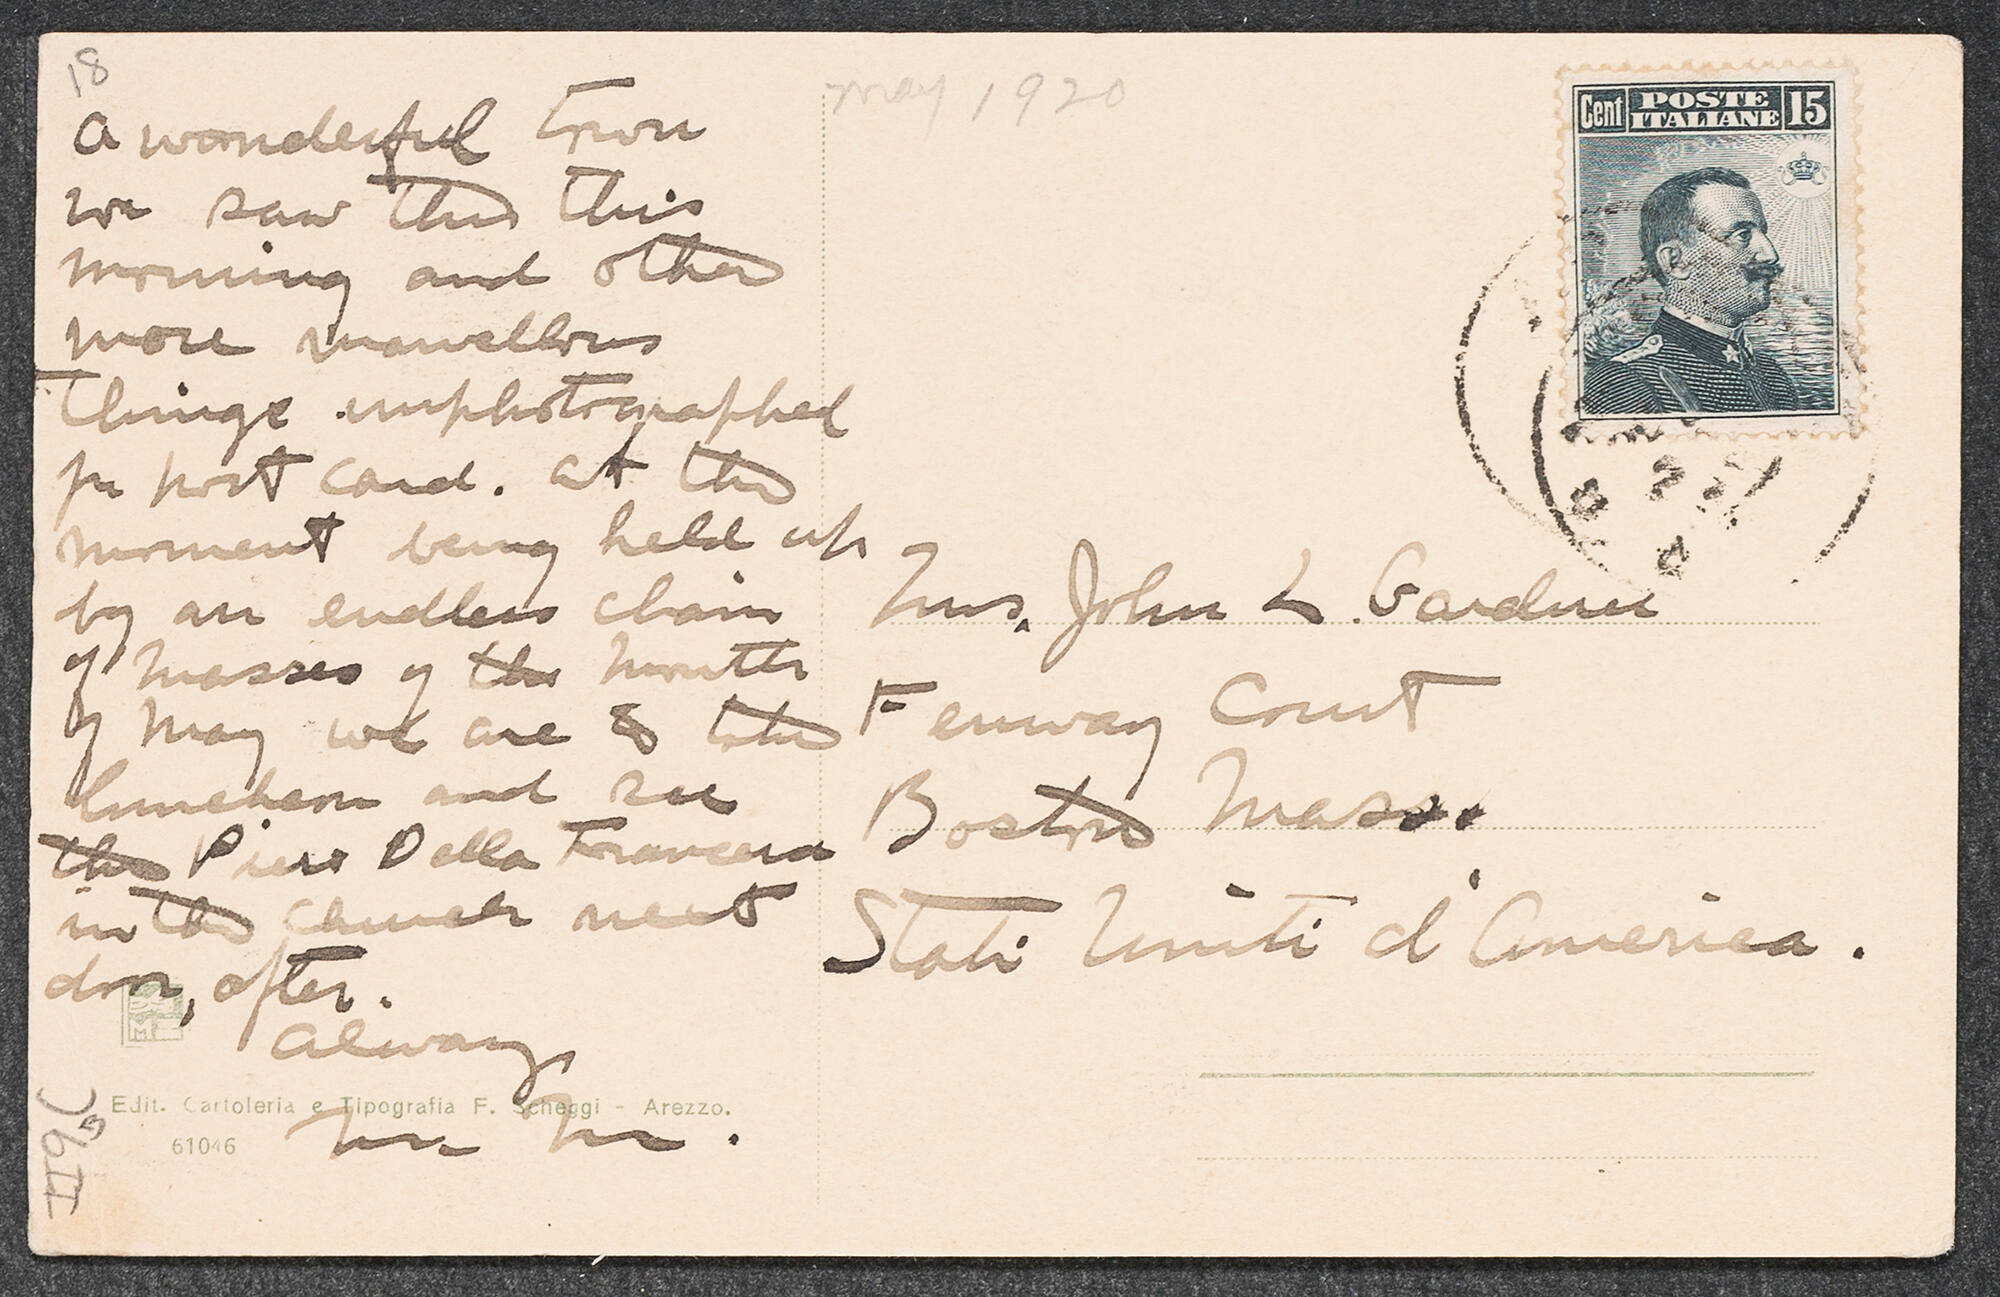 18
A wonderful town
we saw this
morning and other
more marvellous
things unphotographed
for post card. At the
moment being held up
by an endless chain
of masses of the month
of May we are to
luncheon and see
the Piero Della Francesca
in the church next
door, after.
Always
Edit. Cartoleria e Tipografia F. Scheggi - Arezzo.
61046
May 1920
Cent POSTE ITALIANE 15
Mrs. John L. Gardner
Fenway Court
Boston Mass.
Stati Uniti d'America.